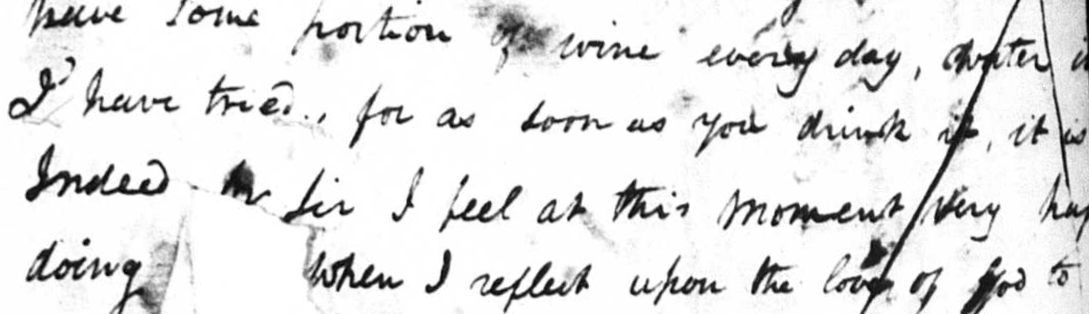 have some portion of wine every day, water
I have tried, for as soon as you drink it, it is
Indeed Sir I feel at this moment very
doing when I reflect upon the love of God to